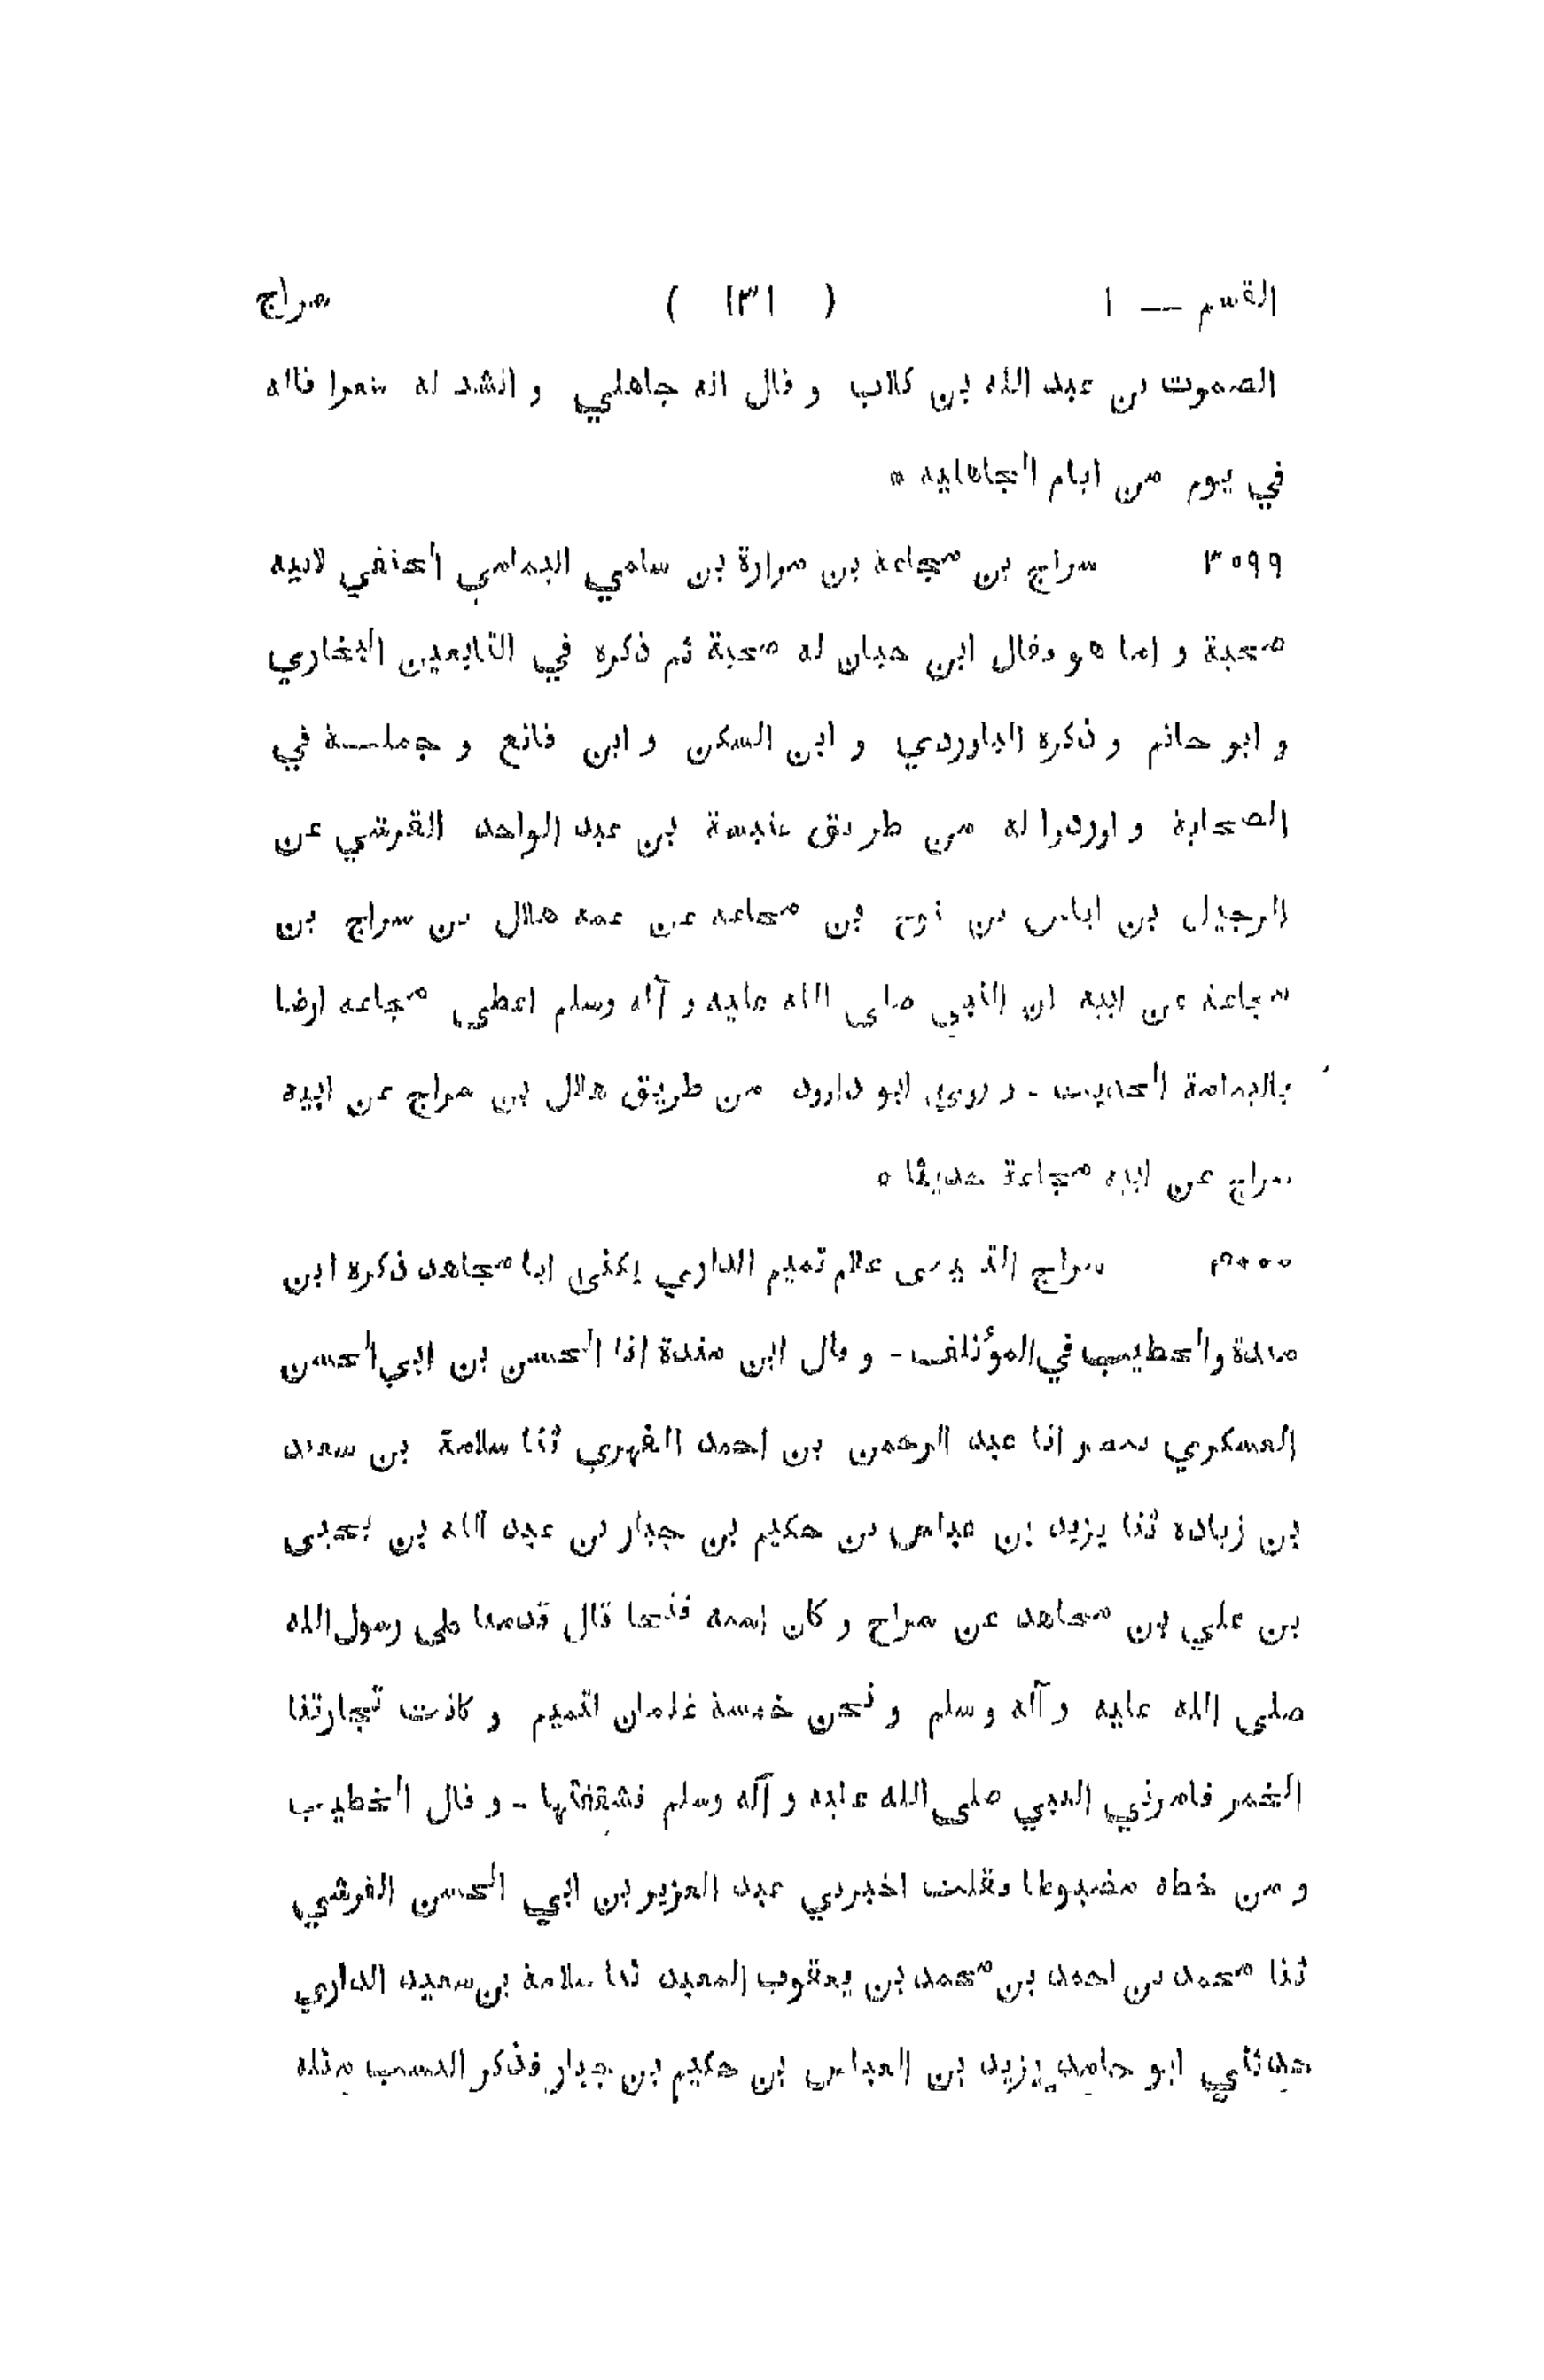 القسم — ١ ( ١٣١ ) سراج
الصموت بن عبد الله بن كلاب و قال انه جاهلي و انشد له شعرا قاله
في يوم من ايام الجاهلية *
٣٠٩٩ سراج بن مجاعة بن مرارة بن سلمي اليمامي الحنفي لابيه
صحبة و اما هو فقال ابن حبان له صحبة ثم ذكره في التابعين البخاري
و ابو حاتم و ذكره الباوردي و ابن السكن و ابن قانع و جملة في
الصحابة و اوردوا له من طريق عنبسة بن عبد الواحد القرشي عن
الدخيل بن اياس بن نوح بن مجاعه عن عمه هلال بن سراج بن
مجاعة عن ابيه ان النبي صلى الله عليه و آله وسلم اعطى مجاعه ارضا
باليمامة الحديث - و روى ابو داوود من طريق هلال بن سراج عن ابيه
سراج عن ابيه مجاعة حديثا *
سراج التميمي غلام تميم الداري يكنى ابا مجاهد ذكره ابن
مندة والخطيب في المؤتلف - و قال ابن مندة انا الحسن بن ابي الحسن
العسكري بمصر انا عبد الرحمن بن احمد الفهري ثنا سلامة بن سعيد
بن زياده ثنا يزيد بن عباس بن حكيم بن خيار بن عبد الله بن يحيى
بن علي بن مجاهد عن سراج و كان اسمه فتحا قال قدمنا على رسول الله
صلى الله عليه و آله و سلم و نحن خمسة غلمان لتميم و كانت تجارتنا
الخمر فامرني النبي صلى الله عليه و آله وسلم فشققتها - و قال الخطيب
و من خطه مضبوطا نقلت اخبرني عبد العزيز بن ابي الحسن القرشي
ثنا محمد بن احمد بن محمد بن يعقوب المفيد ثنا سلامة بن سعيد الداري
حدثني ابو حامد يزيد بن العباس بن حكيم بن خيار فذكر النسب مثله